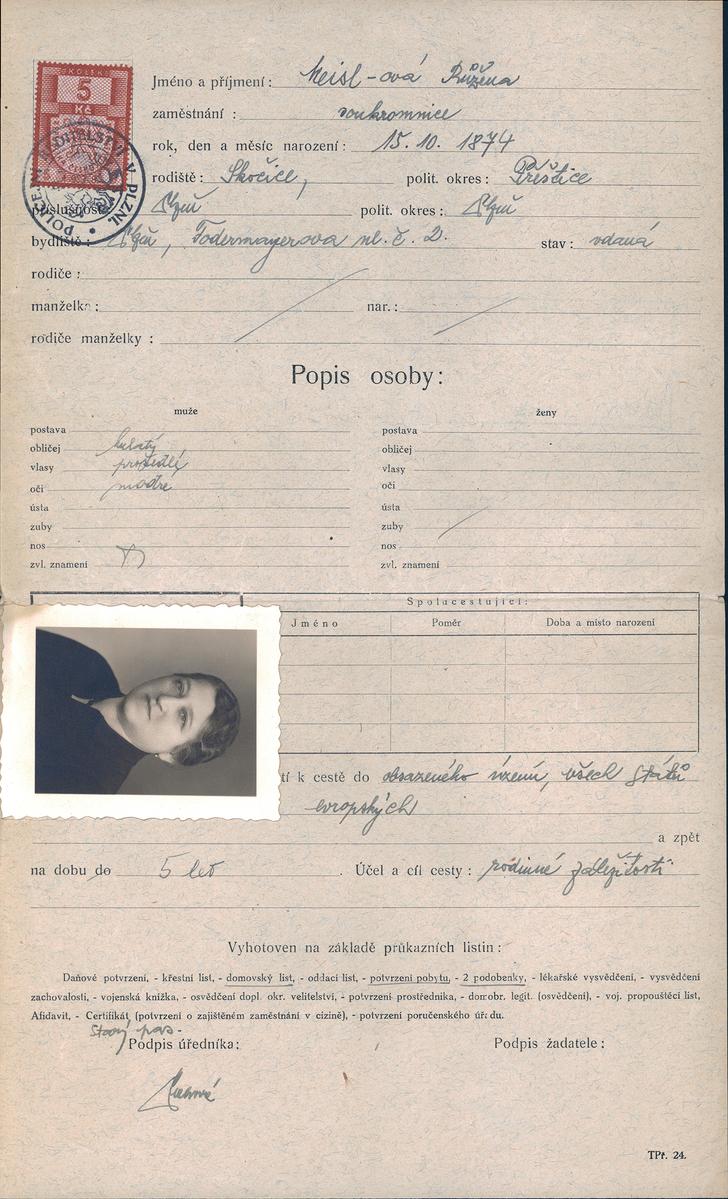 KOLEK
5
Kč
POLICEJNÍ ŘEDITELSTVÍ V PLZNI.
Jméno a příjmení: Meisl-ová Růžena
zaměstnání: soukromnice
rok, den a měsíc narození: 15. 10. 1874
rodiště: Skočice, polit. okres: Přeštice
příslušnost: Plzeň polit. okres: Plzeň
bydliště: Plzeň, Todermayerova ul. č. 2. stav: vdaná
rodiče:
manželka: nar.:
rodiče manželky:
Popis osoby:
muže ženy
postava postava
obličej kulatý obličej
vlasy prošedlé vlasy
oči modré oči
ústa ústa
zuby zuby
nos nos
zvl. znamení zvl. znamení
Spolucestující:
Jméno Poměr Doba a místo narození
tí k cestě do obsazeného území, všech států
evropských
a zpět
na dobu do 5 let. Účel a cíl cesty: rodinné záležitosti
Vyhotoven na základě průkazních listin:
Daňové potvrzení, - křestní list, - domovský list, - oddací list, - potvrzení pobytu, - 2 podobenky, - lékařské vysvědčení, - vysvědčení
zachovalosti, - vojenská knížka, - osvědčení dopl. okr. velitelství, - potvrzení prostředníka, - domobr. legit. (osvědčení), - voj. propouštěcí list,
Afidavit, - Certifikát, (potvrzení o zajištěném zaměstnání v cizině), - potvrzení poručenského úřadu.
Starý pas -
Podpis úředníka: Podpis žadatele:
TPř. 24.